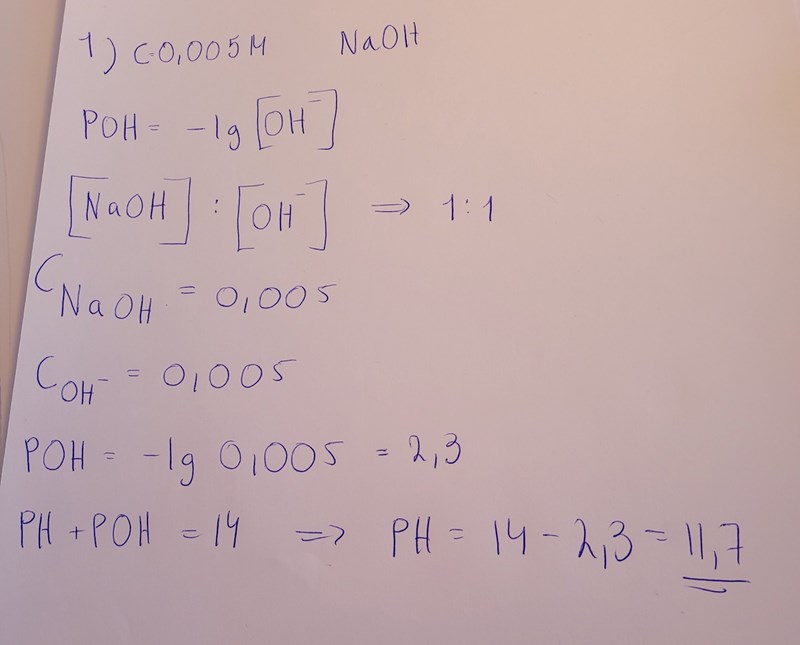 1) C 0,005M NaOH
POH = -lg [OH⁻]
[NaOH] : [OH⁻] => 1:1
C NaOH = 0,005
C OH⁻ = 0,005
POH = -lg 0,005 = 2,3
PH + POH = 14 => PH = 14 - 2,3 = 11,7